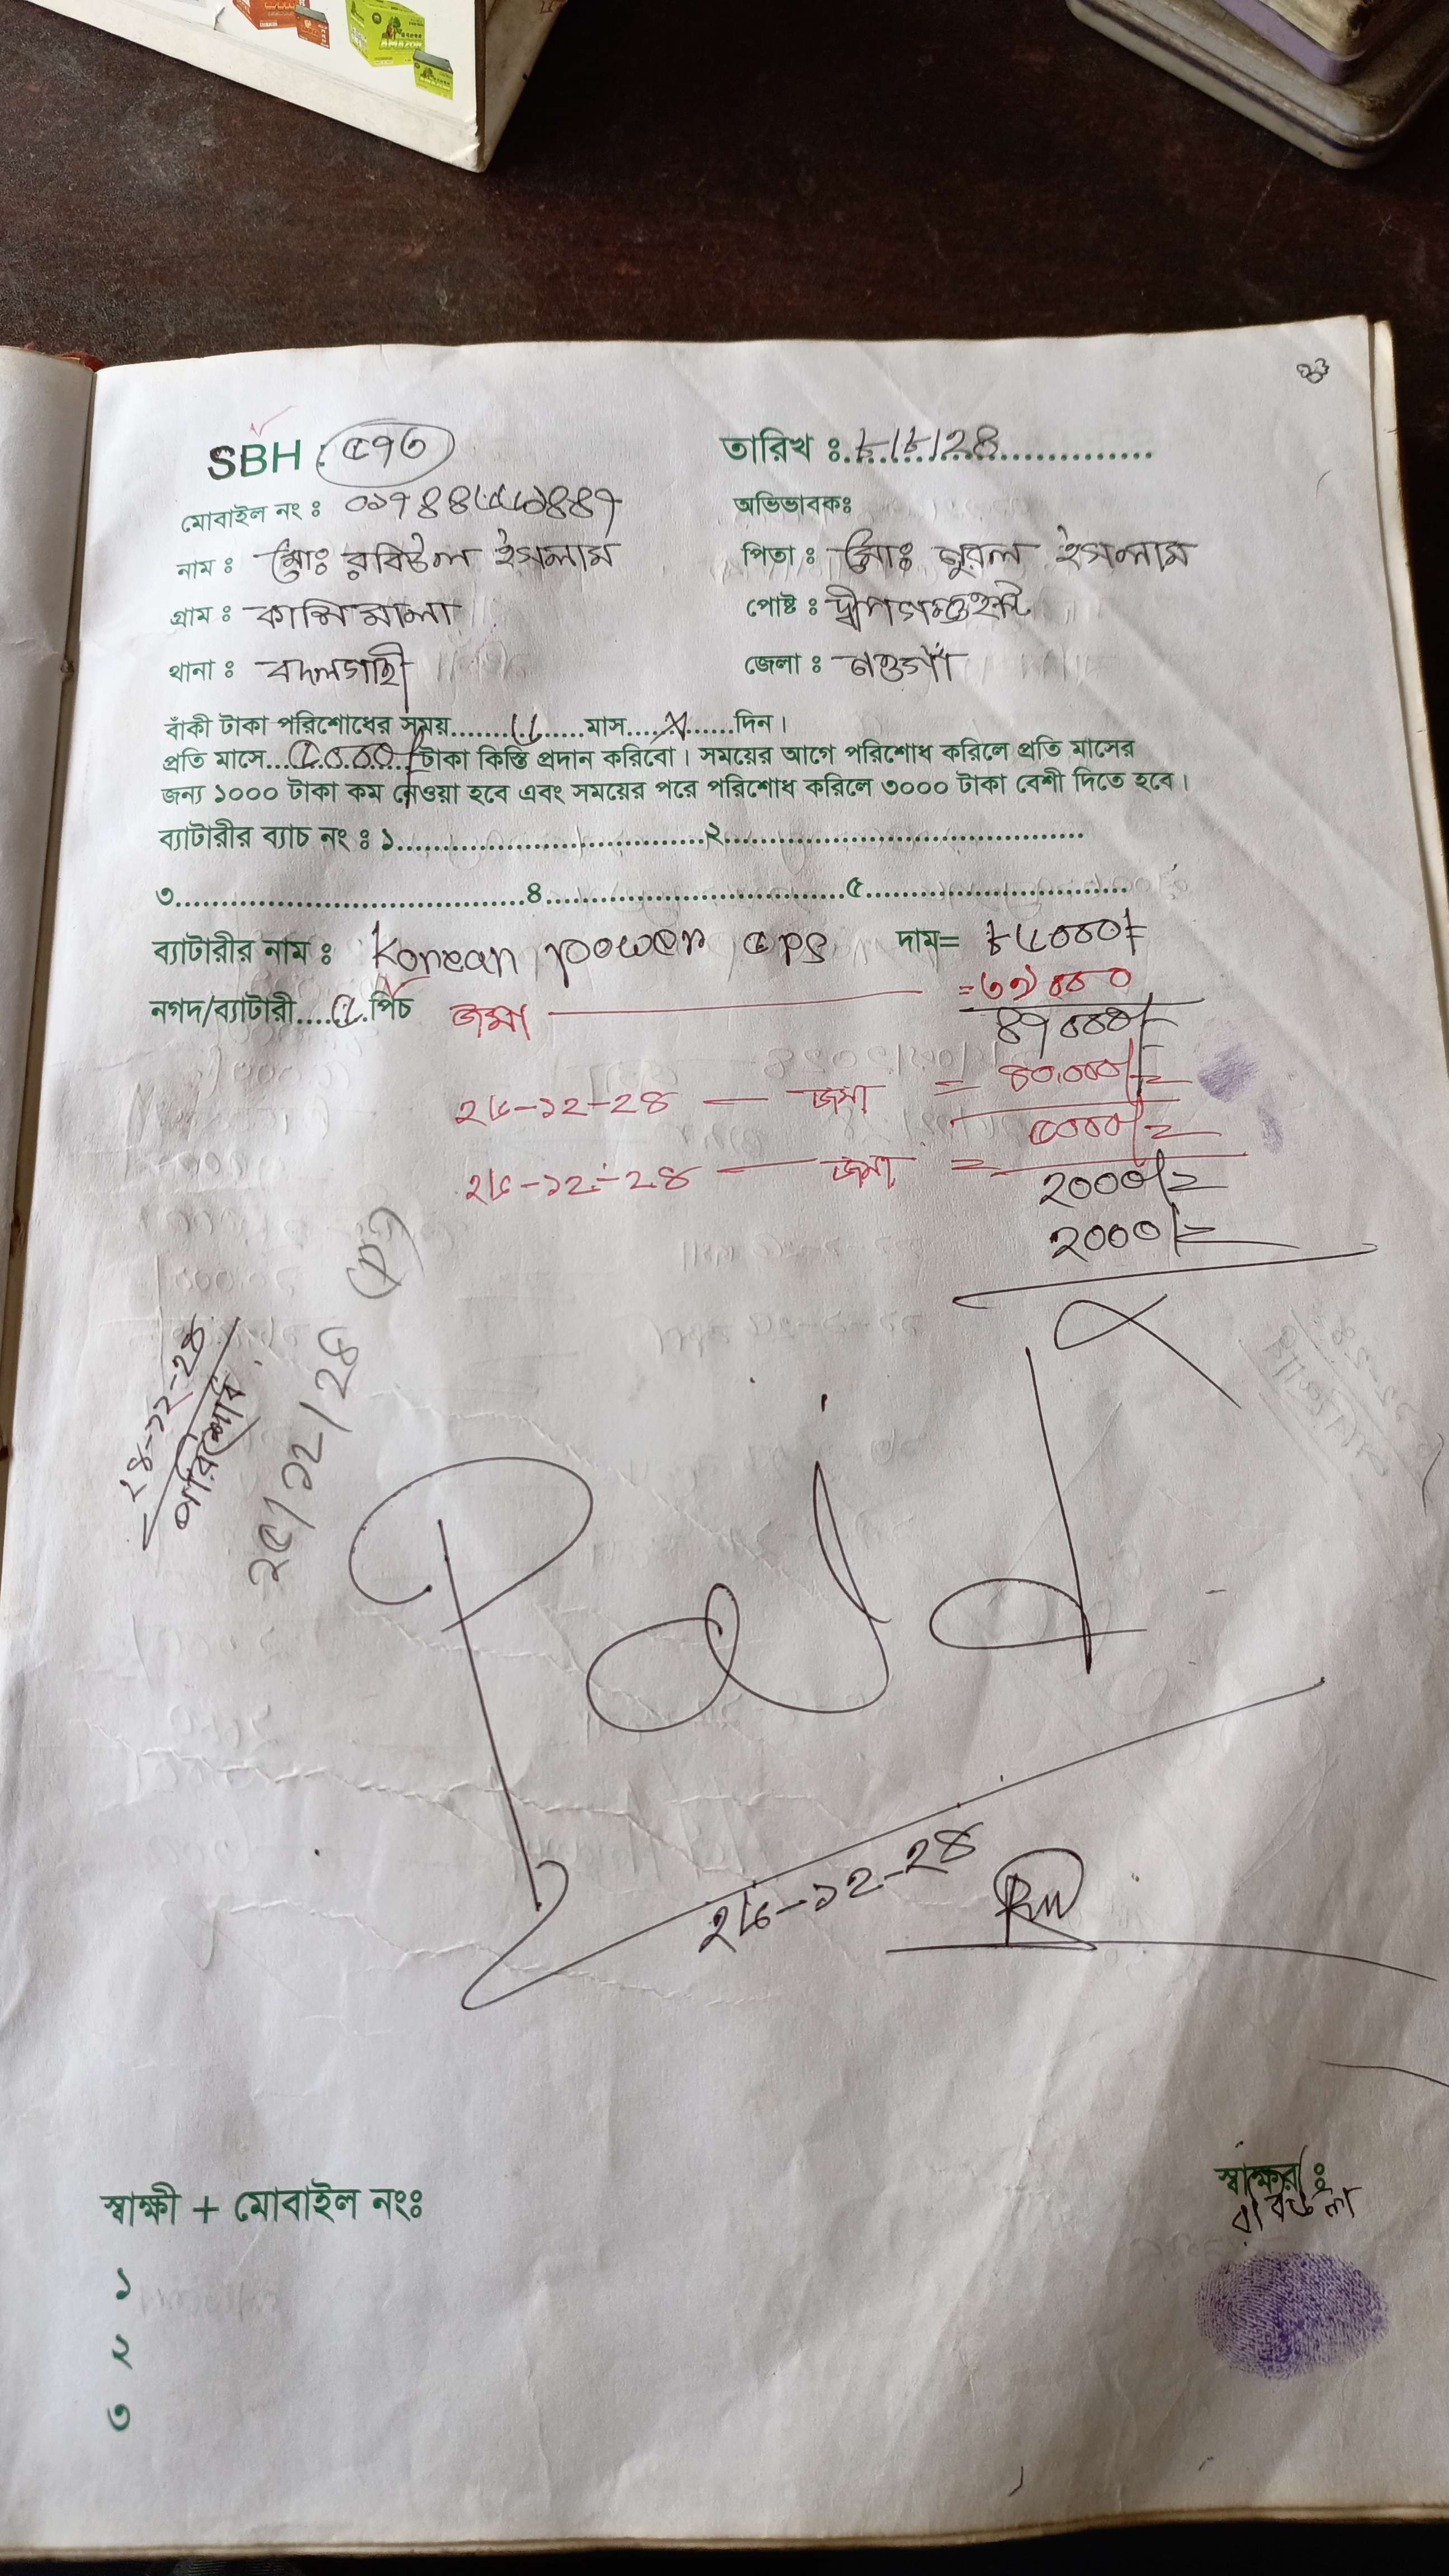 AMAZON
SBH : ৫৭৩
তারিখ ঃ ৮/৮/২৪
মোবাইল নং ঃ
অভিভাবকঃ
নাম ঃ মোঃ রবিউল ইসলাম
পিতা ঃ মোঃ নুরুল ইসলাম
গ্রাম ঃ
পোষ্ট ঃ
থানা ঃ বদলগাছী
জেলা ঃ নওগাঁ
বাঁকী টাকা পরিশোধের সময়................মাস.....x......দিন।
প্রতি মাসে...৫০০০/-টাকা কিস্তি প্রদান করিবো। সময়ের আগে পরিশোধ করিলে প্রতি মাসের
জন্য ১০০০ টাকা কম নেওয়া হবে এবং সময়ের পরে পরিশোধ করিলে ৩০০০ টাকা বেশী দিতে হবে।
ব্যাটারীর ব্যাচ নং ঃ ১..................................২..........................................
৩.......................................৪..................................৫................................
ব্যাটারীর নাম ঃ Korean power ৫ps দাম=
নগদ/ব্যাটারী.....৫..পিচ জমা
৪৭০০০/-
২৬-১২-২৪ — জমা = ৪০,০০০/=
২৬-১২-২৪ — জমা = ৫০০০/=
২০০০/=
২০০০/=
২৪-১২-২৪
পরিশোধ
২৫/১২/২৪
Paid
২৬-১২-২৪
স্বাক্ষী + মোবাইল নংঃ
স্বাক্ষর ঃ
১
২
৩